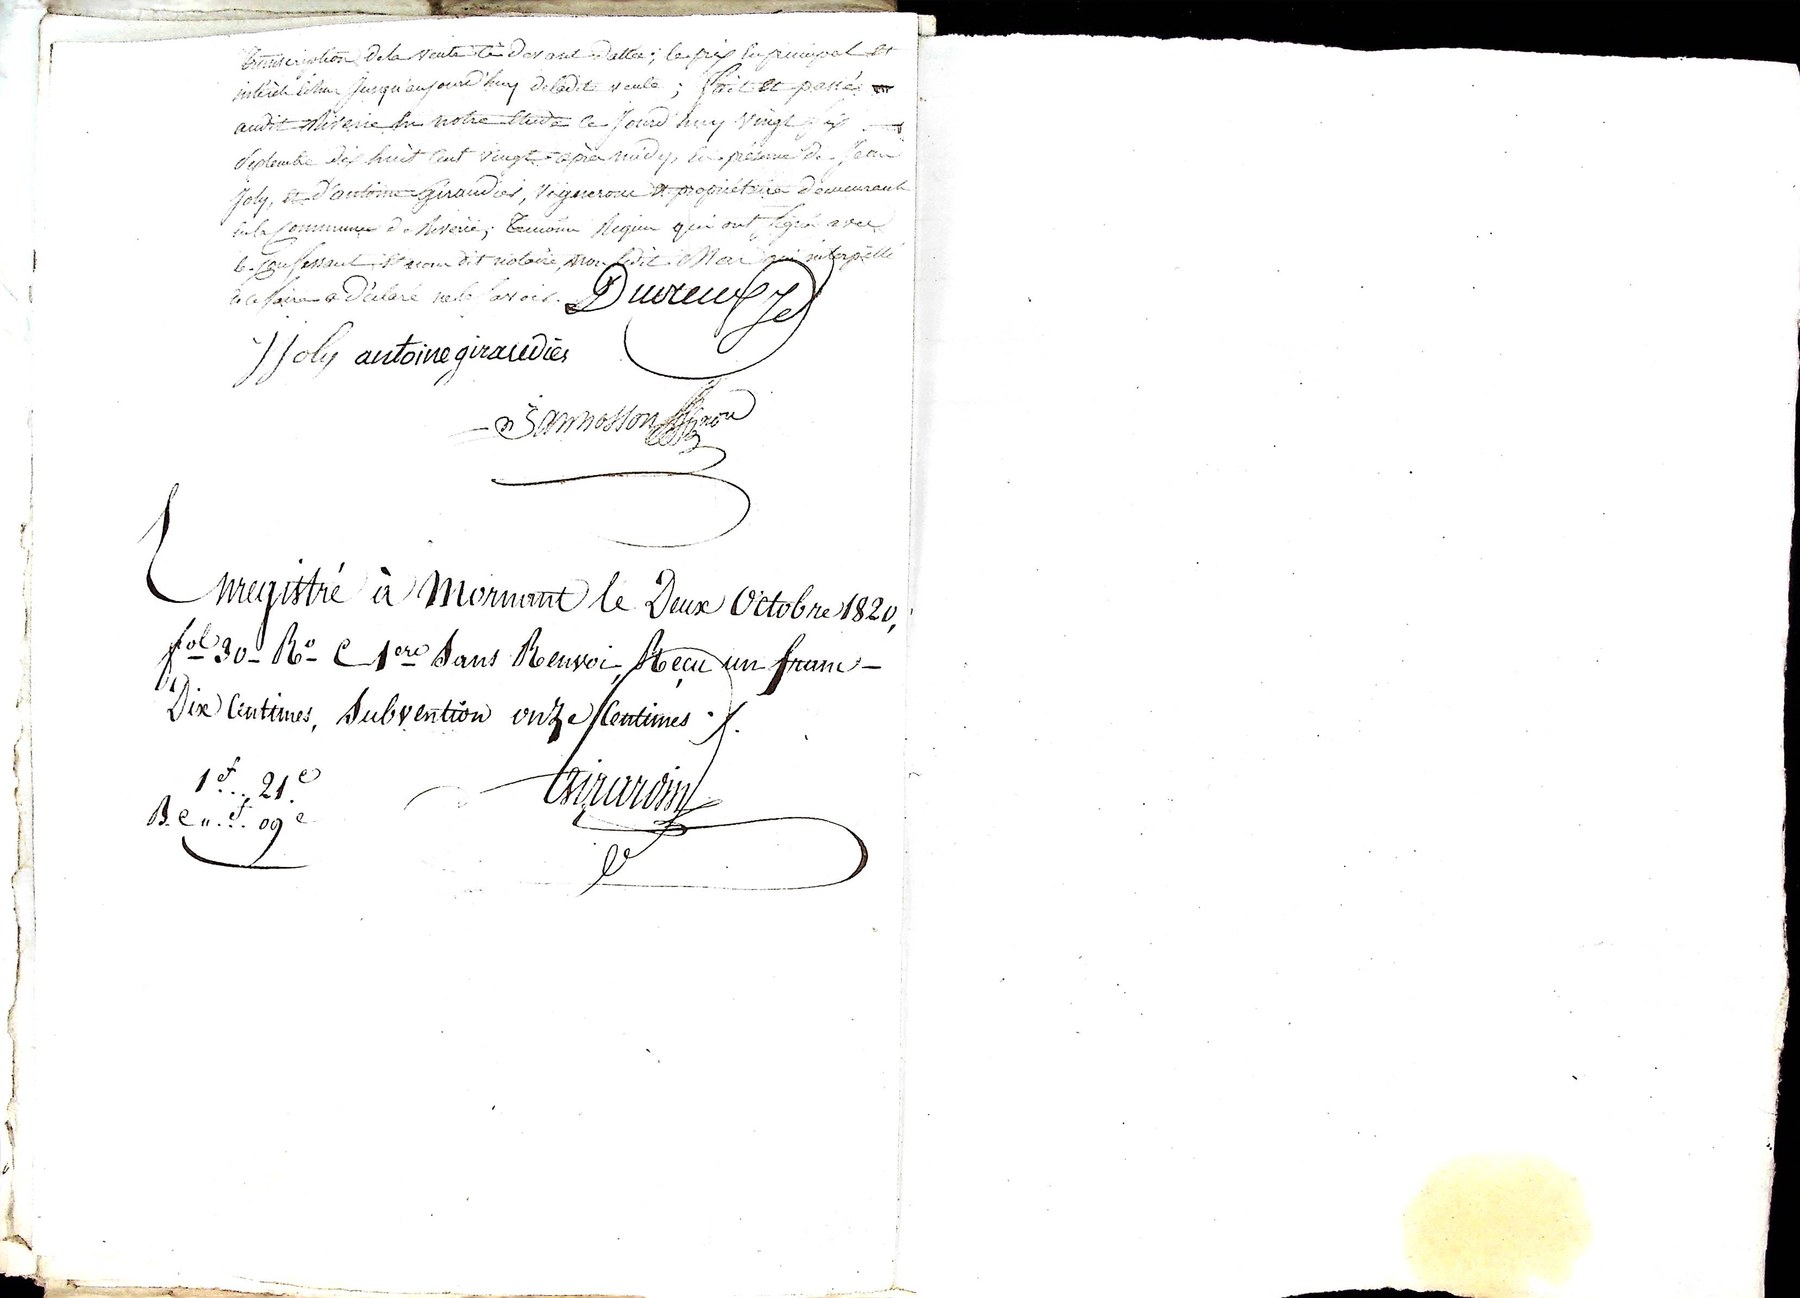 transcription de la vente cé devant dattée; le prix en principal et
intérêt échu jusqu'aujourd'huy de ladite vente; fait et passé
audit Riverie en notre étude ce jourd'huy vingt six
septembre dix huit cent vingt après midy, en présence de Jean
Joly, et d'antoine Giraudier, vigneron et propriétaire demeurant
en la Commune de Riverie; témoins requis qui ont signé avec
le Confessant et nous dit notaire, non ledit qui interpellé
de ce faire a déclaré ne le savoir. Duvreux
J Joly antoine giraudiés
Enregistré à Mornant le Deux Octobre 1820,
fol 30 Ro C 1ere Sans Renvoi, Reçu un franc
Dix Centimes, Subvention onze Centimes
1f.. 21c
B. c ".. f 09c
Girardin